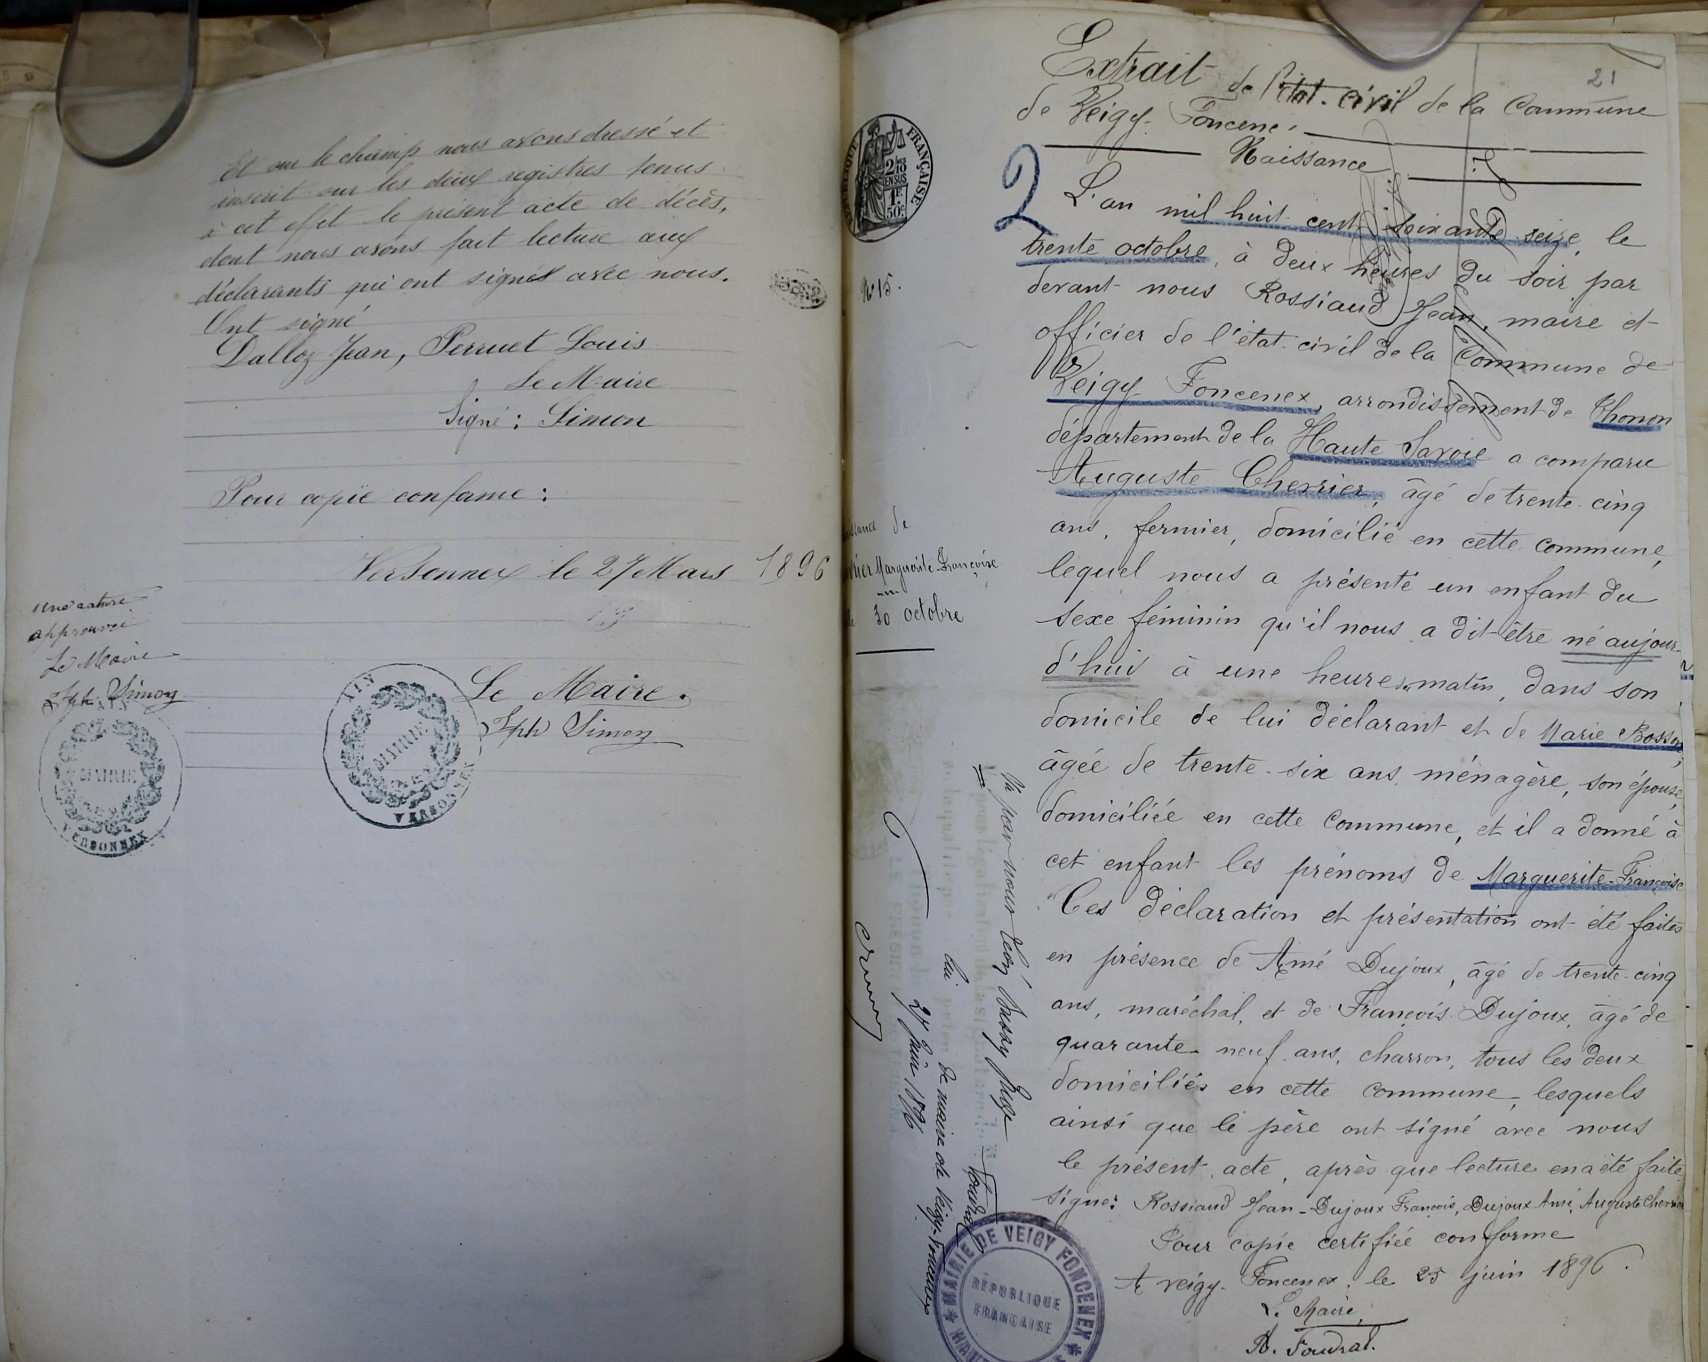 Et sur le champ nous avons dressé et
inscrit sur les deux registres tenus
à cet effet le présent acte de décès,
dont nous avons fait lecture aux
déclarants qui ont signé avec nous.
Ont signé
Dalloz Jean, Perruet Louis
Le Maire
Signé : Simon
Pour copie conforme :
Versonnex le 27 Mars 1896
une rature
approuvée
Le Maire
Jph Simon
AIN
MAIRIE
VERSONNEX
Le Maire.
Jph Simon
AIN
MAIRIE
VERSONNEX
21
Extrait de l'état-civil de la Commune
de Veigy-Foncenex
Naissance
2
RÉPUBLIQUE FRANÇAISE
2/10
EN SUS
1F
50c
N°15.
Naissance de
Chevrier Marguerite-Françoise
le 30 octobre
L'an mil huit cent soixante seize, le
trente octobre, à deux heures du soir par
devant nous Rossiaud Jean, maire et
officier de l'état-civil de la Commune de
Veigy-Foncenex, arrondissement de Thonon
département de la Haute Savoie a comparu
Auguste Chevrier, âgé de trente-cinq
ans, fermier, domicilié en cette commune,
lequel nous a présenté un enfant du
sexe féminin qu'il nous a dit être né aujour-
d'hui à une heure du matin, dans son
domicile de lui déclarant et de Marie Bosson,
âgée de trente-six ans ménagère, son épouse,
domiciliée en cette Commune, et il a donné à
cet enfant les prénoms de Marguerite-Françoise
Ces déclaration et présentation ont été faites
en présence de Amé Dujoux, âgé de trente-cinq
ans, maréchal, et de François Dujoux, âgé de
quarante-neuf ans, charron, tous les deux
domiciliés en cette commune, lesquels
ainsi que le père ont signé avec nous
le présent acte, après que lecture en a été faite
signé: Rossiaud Jean - Dujoux François, Dujoux Amé, Auguste Chevrier
Pour copie certifiée conforme
A Veigy-Foncenex, le 25 juin 1896.
Le Maire,
A. Foudral.
Vu par nous Juge
Foudral
de maire de Veigy-Foncenex
27 Juin 1896
MAIRIE DE VEIGY FONCENEX
RÉPUBLIQUE
FRANÇAISE